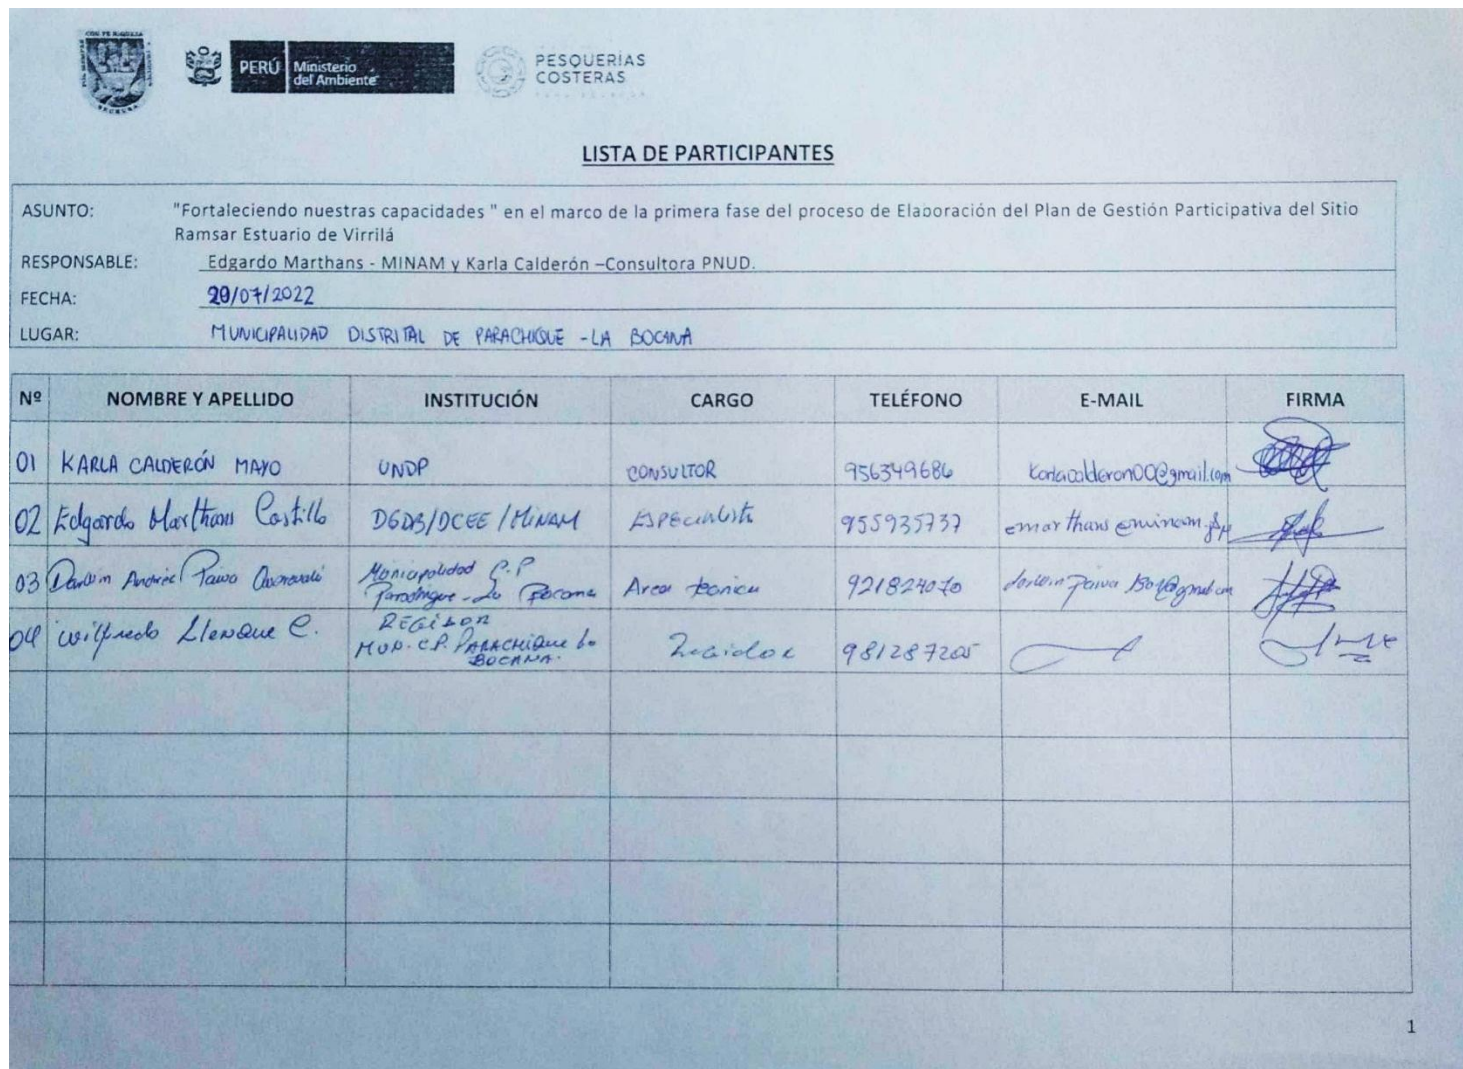 CON FE RIQUEZA
SECHURA
PERÚ Ministerio del Ambiente
PESQUERÍAS
COSTERAS
LISTA DE PARTICIPANTES
ASUNTO: "Fortaleciendo nuestras capacidades " en el marco de la primera fase del proceso de Elaboración del Plan de Gestión Participativa del Sitio
Ramsar Estuario de Virrilá
RESPONSABLE: Edgardo Marthans - MINAM y Karla Calderón –Consultora PNUD.
FECHA: 20/07/2022
LUGAR: MUNICIPALIDAD DISTRITAL DE PARACHIQUE - LA BOCANA
Nº NOMBRE Y APELLIDO INSTITUCIÓN CARGO TELÉFONO E-MAIL FIRMA
01 KARLA CALDERÓN MAYO UNDP CONSULTOR 956349686 karlacalderon00@gmail.com
02 Edgardo Marthans Castillo DGDB/DCEE/MINAM Especialista 955935737
03 Darwin Andrés Paiva Municipalidad C.P Parachique - La Bocana Area tecnica 921824070
04 Wilfredo Llenque C. REGIDOR MUN. C.P. PARACHIQUE La BOCANA. Regidor 981287205
1